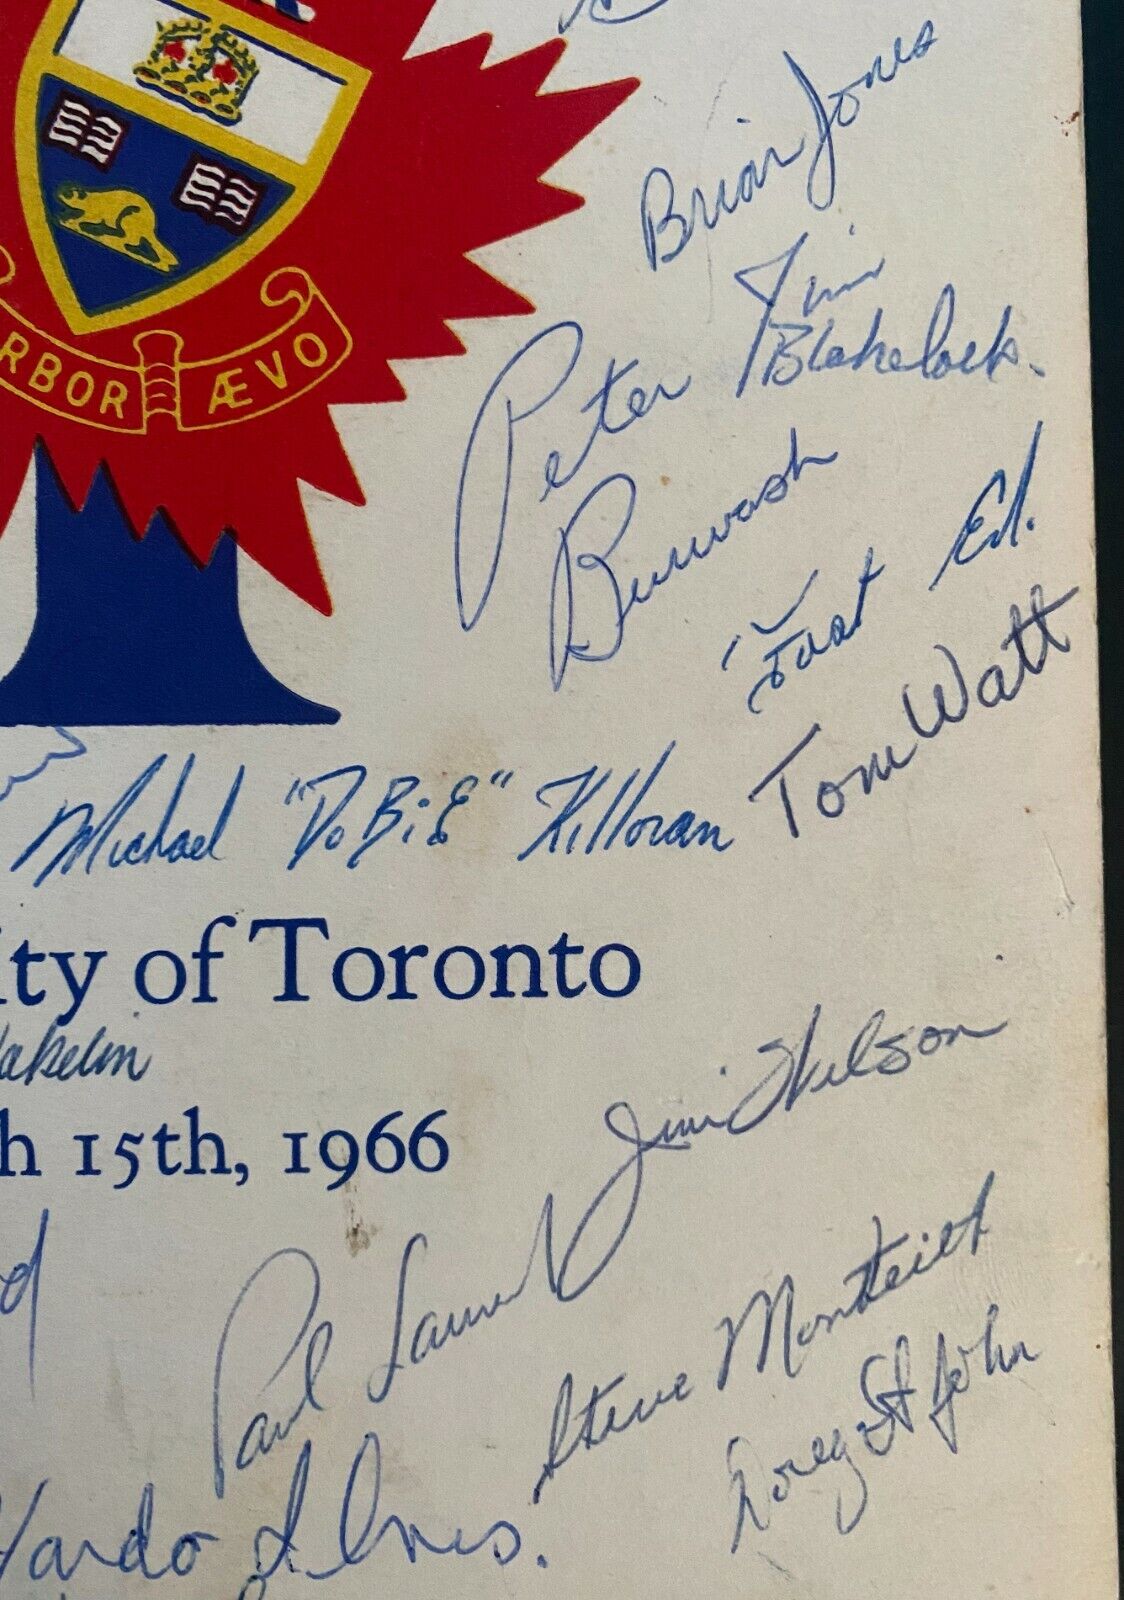 Brian Jones
RBOR ÆVO
Jim
Blakelock.
Peter
Burwash
Ed.
Tom Watt
Michael "DoBiE" Killoran
ity of Toronto
akelin
h 15th, 1966
Jim
Paul Laurent
Steve Monteith
Doug St John